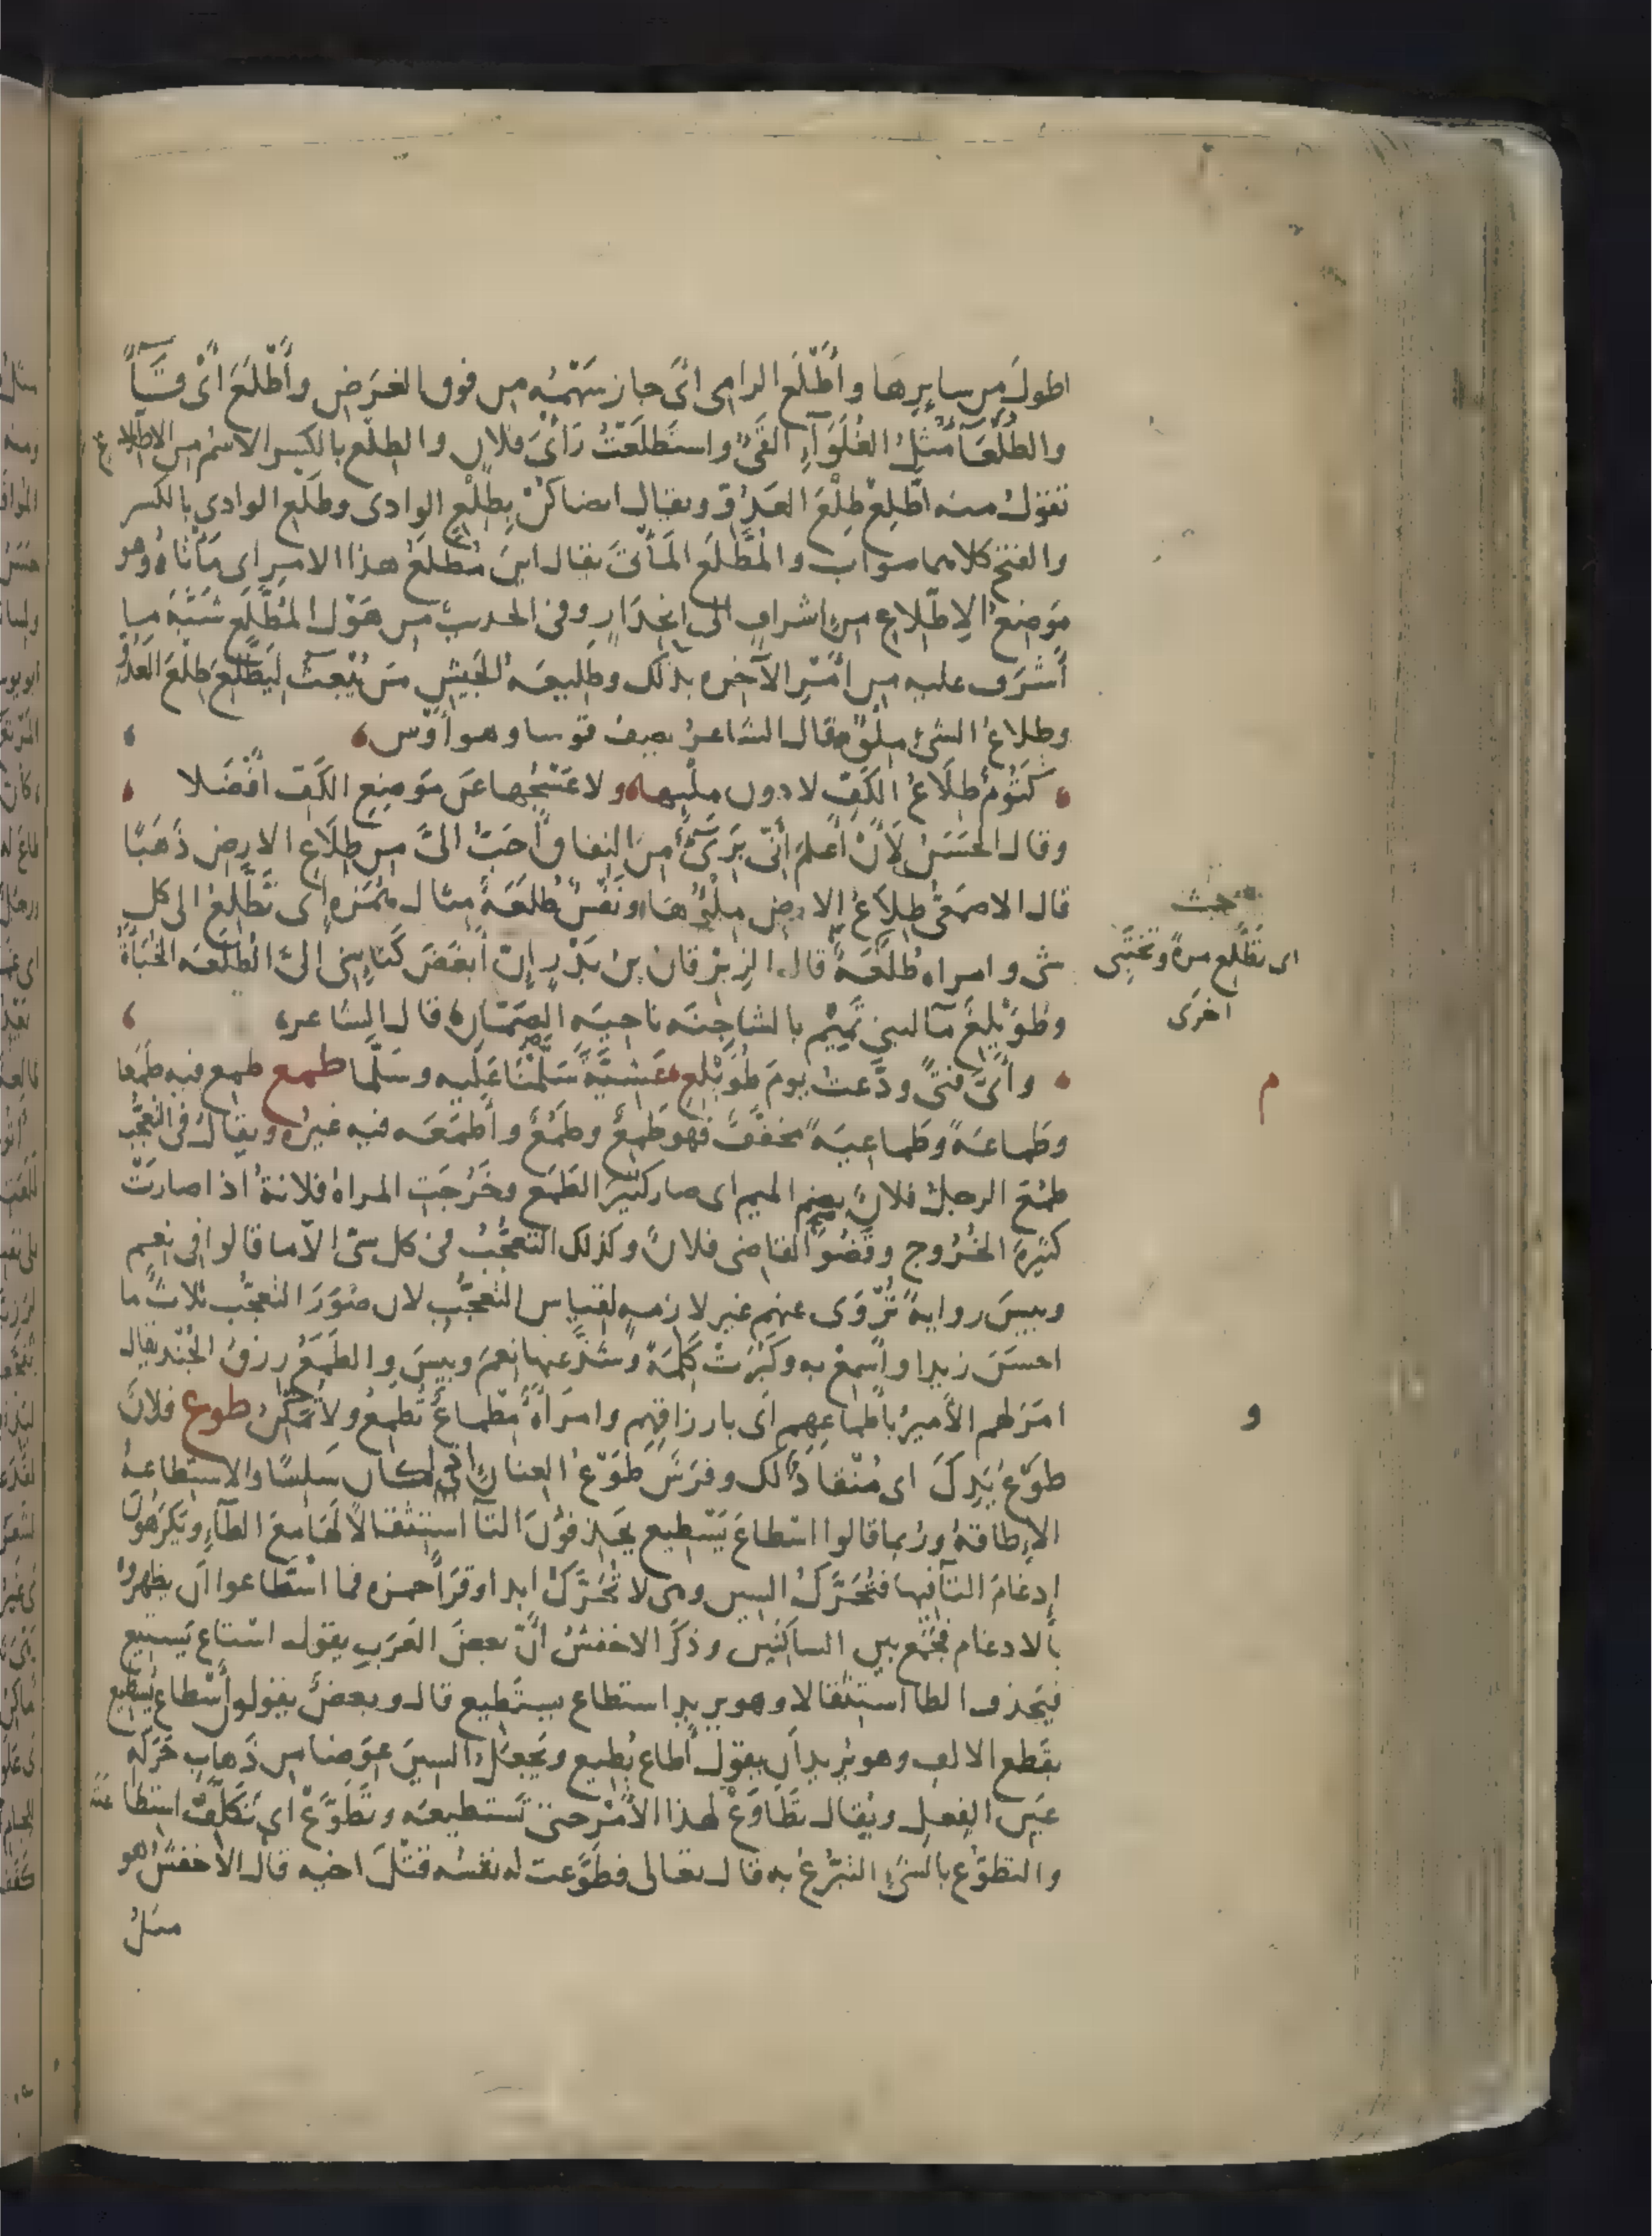 اطولَ من سايرها وأَطْلَع الرامى اىْ جاز سَهْمُه من فوق الغَرَضِ وأَطْلَعَ اىْ قَآءَ
والطُلَعَآءُ مثلُ الغُلَوَآءِ القَىْءُ واستَطْلَعْتُ رَأْىَ فلان والطِلْع بالكسر الاسم من الاطلاع
تقول منه اطّلِعْ طِلْعَ العدُوّ ويقال ايضا كُنْ بِطِلْعِ الوادى وطَلْع الوادى بالكسر
والفتح كلاهما صواب والمُطَّلَع المَأْتَى يقال اينَ مُطَّلَعُ هذا الامرِ اى مَأْتَاهُ وهو
مَوضِعُ الاِطّلاعِ من اشرافٍ الى انحِدَارٍ وفى الحديث من هَوْلِ المُطَّلَعِ شَبَّهَ ما
أَشْرَف عليه من امْرِ الآخره بذلك وطَلِيعَه الجَيشِ مَن يُبْعَث لِيَطَّلِعَ طِلْعَ العَدُوِّ
وطِلاعُ الشىءِ مِلْؤُه قال الشاعرُ يصف قوسا وهو أَوْس
كَتُومٌ طِلَاعُ الكَفِّ لا دون مِلْئِها ولا عَجْسُها عَن مَوضِعِ الكَفِّ أَفْضَلا
وقال الحَسَنُ لَأَنْ أَعلَمَ أَنّى بَرِىءٌ من النِفاقِ أَحَبُّ الىَّ من طِلَاعِ الارضِ ذَهَبًا
قال الاصمَعىُّ طِلَاعُ الارضِ مِلْؤُهَا ونَفْسٌ طُلَعَةٌ مثال هُمَزه اى تَطَّلِعُ الى كل
شىء وامراه طُلَعَةٌ قال الزِبْرِقانُ بنُ بَدْرٍ إِنّ أَبْغَضَ كَنَائِنِى الىَّ الطُلَعَه الخُبَأَةُ
اى تَطَّلِع مرةً وتختَبِى
اخرَى
وطُوَيْلِعٌ مآ لبنى تَمِيْم بالشاجِنَه ناحيَه الصَمّان قال الشاعر
وأَىُّ فتىً ودَّعتُ يومَ طُوَيْلِعٍ عَشِيَّةَ سَلَّمْنَا عَلَيه وسَلَّما طمع طمِع فيه طَمَعًا
م
وطَماعَةً وطَماعِيَةً مُخفَّفٌ فهو طَمِعٌ وطَمُعٌ وأَطمَعَه فيه غيرُه ويقال فى التعجُّب
طَمُعَ الرجلُ فلانٌ بضم الميم اى صار كثيرَ الطَمَع وخَرُجَتِ المراةُ فلانةُ اذا صارتْ
كثيرةَ الخُرُوج وقَضُوَ القاضى فلانٌ وكذلك التعجُّبُ فى كل شىء الّا ما قالوا فى نِعم
وبيسَ روايةً تُرْوَى عنهم غير لازمه لقياس التعجُّب لان صُوَرَ التعجُّب ثلاثٌ ما
احسَنَ زيدا وأَسمِعْ به وكَبُرَتْ كَلِمَةً وشذَّ عنها نِعمَ وبيسَ والطَمَعُ رزقُ الجُنْد يقال
امَرَ لهم الأَميرُ بأَطماعِهِم اىْ بارزاقِهِم وامرَأَةٌ مِطْماعٌ تُطمِعُ ولا تُمَكِّنُ طوع فلانٌ
و
طَوْعُ يَدِكَ اى مُنْقادٌ لك وفرَسٌ طَوْعُ العِنانِ اذا كان سَلِسًا والاستطاعةُ
الاِطاقةُ ورُبما قالوا اسْطاعَ يَسْطِيع يحذفون التآ استثقالًا لَهَا مَعَ الطَآءِ ويَكرَهُون
إدغامَ التآ فيها فتُحَرَّكُ السين وهى لا تُحَرَّكُ ابدا وقرَأَ حمزه فما اسْطّاعوا ان يظهروهُ
بالادغام فجَمَع بين الساكِنَين وذكَرَ الاخفشُ انّ بعضَ العَرَبِ يقول اسْتاعَ يَسْتِيع
فيَحذف الطا استثقالا وهو يريد استطاع يستَطيع قال وبعضٌ يقولُ أَسْطاعَ يُسْطِيع
بقَطع الالف وهو يُريد أن يقولَ أَطاع يُطِيع ويَجعَلُ السينَ عِوَضا من ذَهابِ حَرَكَه
عينِ الفِعلِ ويُقال تَطَاوَعْ لهذا الأَمْرِ حتى تَستطيعَه وتَطَوَّعْ اى تَكلَّفْ استطاعته
والتطوّع بالشىءِ التبرُّعُ به قال تعالى فطوَّعت له نفسُه قَتْلَ اخيه قال الاخفشُ هو
مثلُ